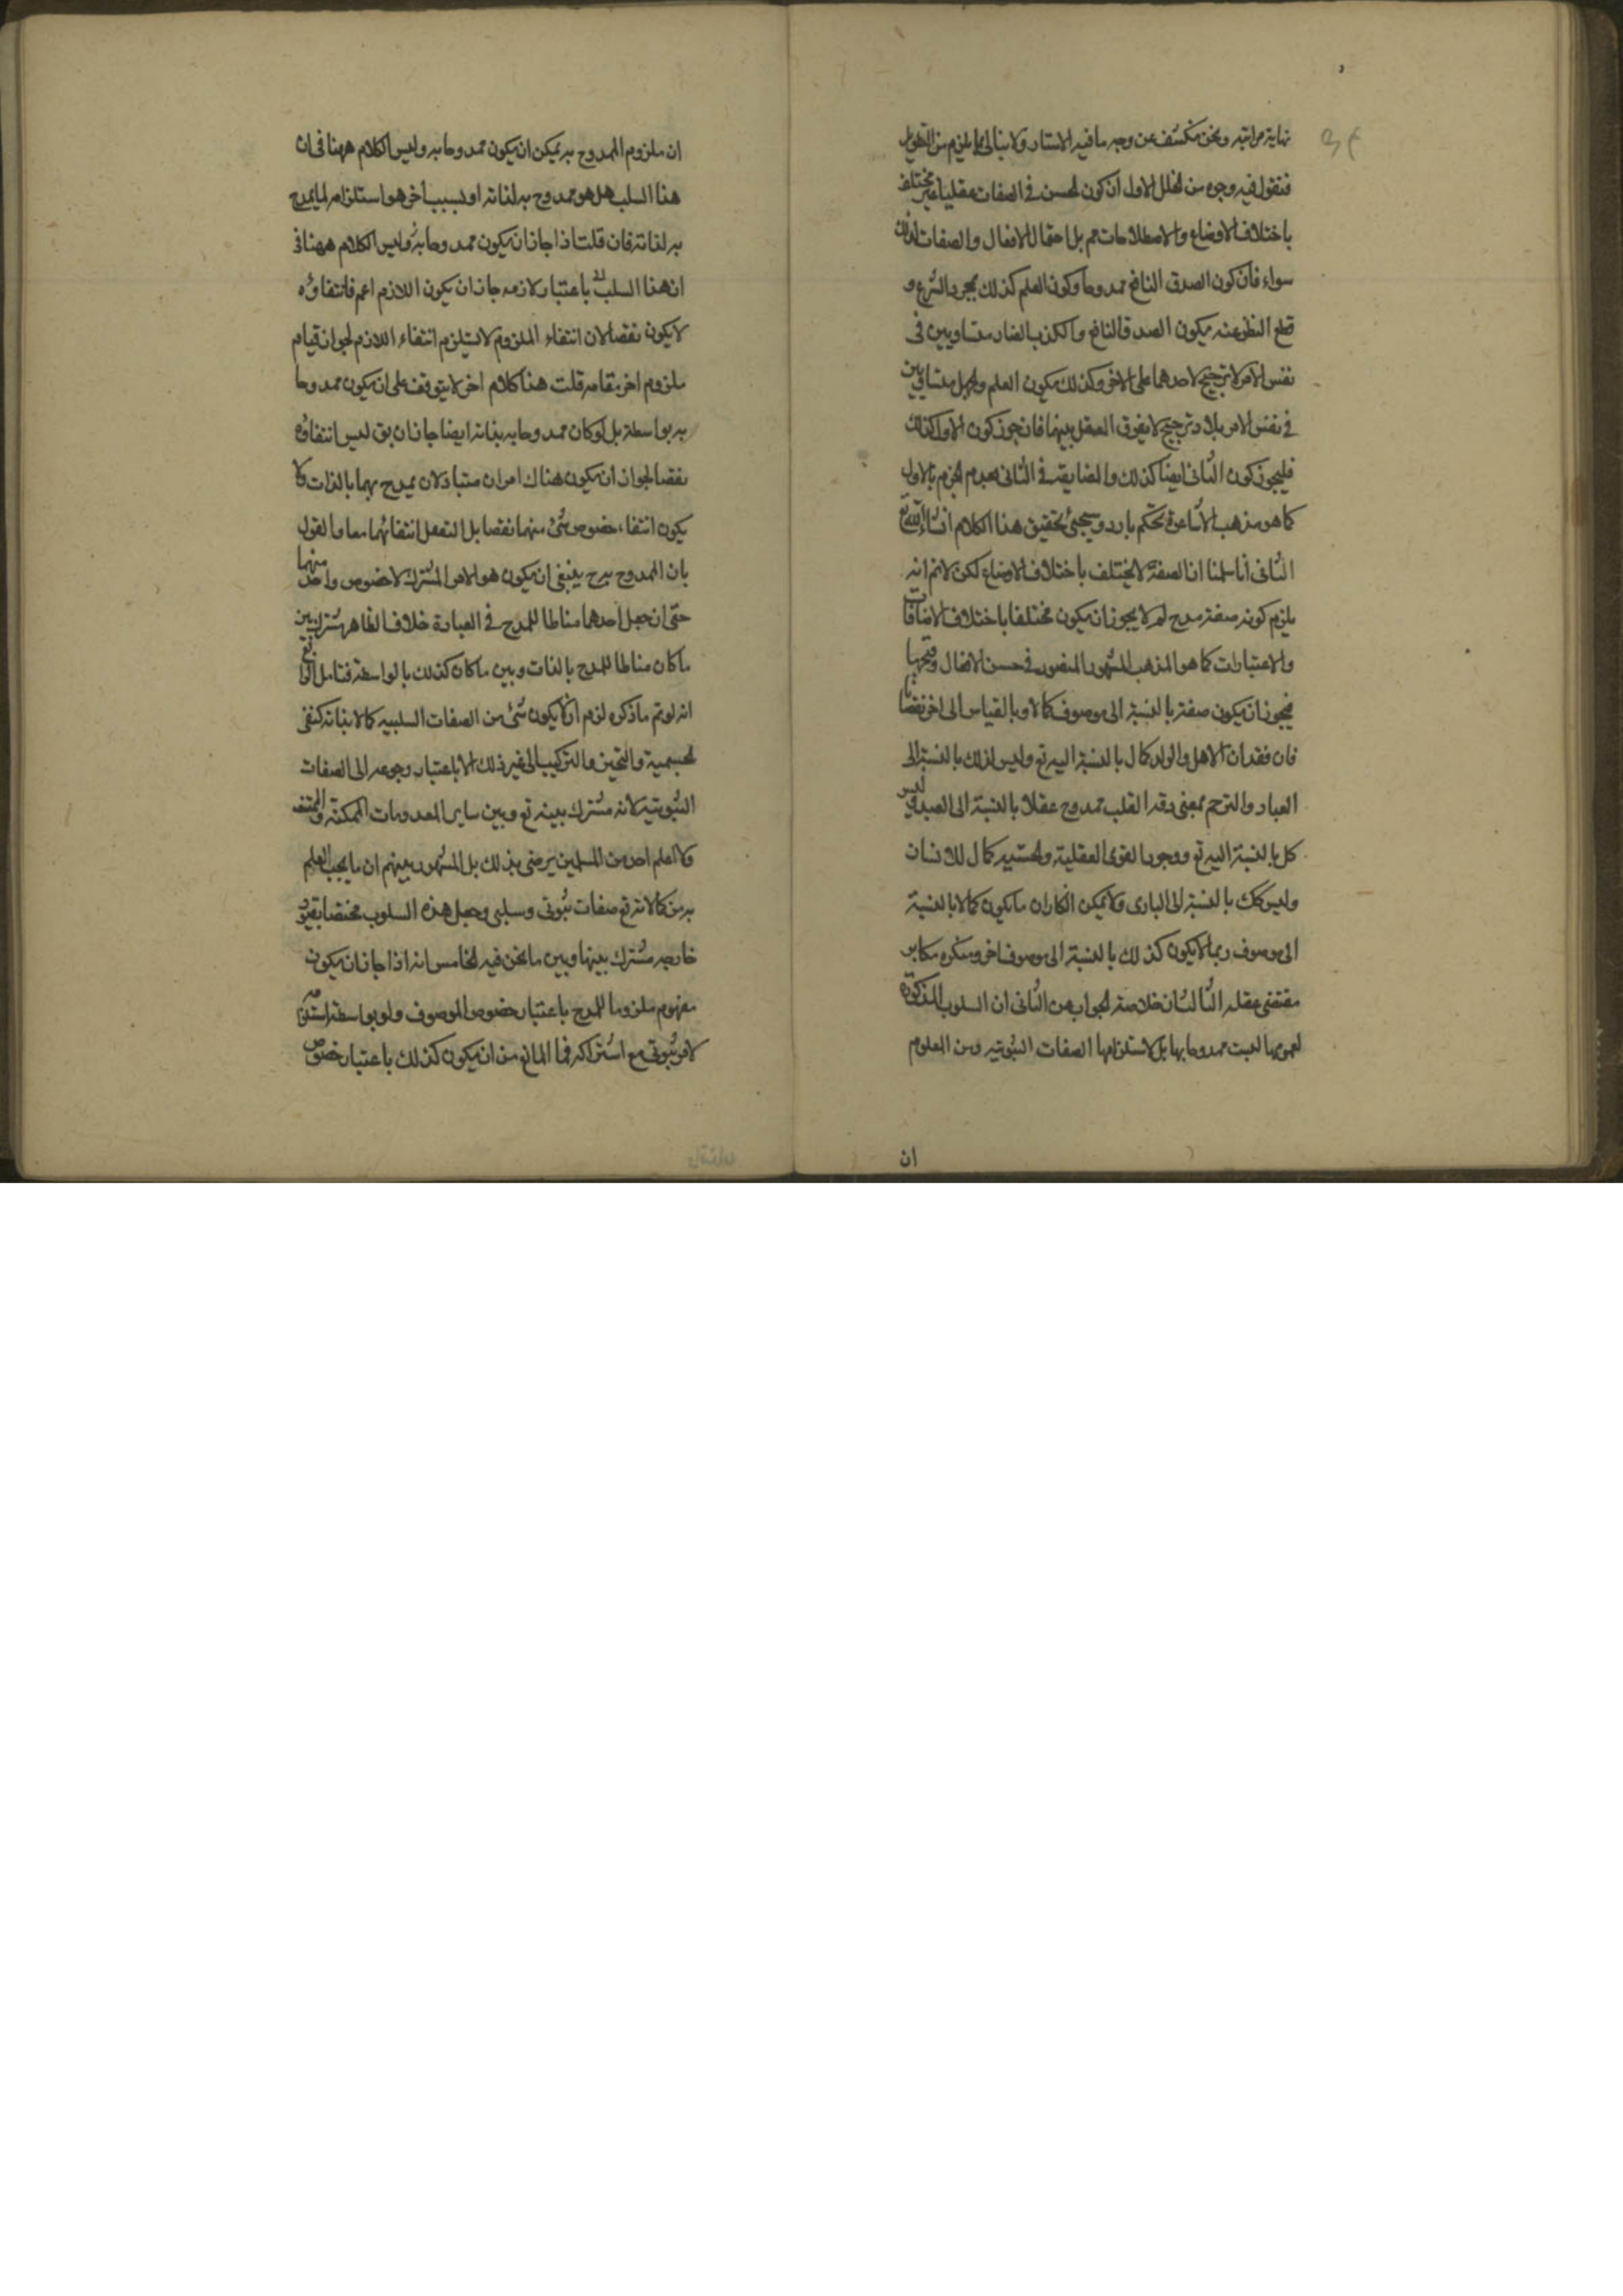 نهايته مراتبه ونحن نكشف عن وجه ما فيه الاستار ولا نبالى بما يلزم من التهويل
فنقول فيه وجوه من الخلل الاول ان كون الحسن فى الصفات عقليا غير مختلف
باختلاف الاوضاع والاصطلاحات مم بل احتمال الافعال والصفات لذلك
سواء فان كون الصدق النافع ممدوحا وكون العلم كذلك بمجرد الشرع و
قطع النظر عنه يكون الصدق النافع والكذب الضار متساويين فى
نفس الامر لا ترجيح لاحدهما على الاخر وكذلك يكون العلم والجهل متساويين
فى نفس الامر بلا ترجيح لا يفرق العقل بينهما فان جوز كون الاول كذلك
فليجوز كون الثانى ايضا كذلك والمضايقة فى الثانى بعدم الجزم بالاول
كما هو مذهب الاشاعرة تحكم بارد وسيجئ تحقيق هذا الكلام ان شاء الله تع
الثانى انا سلمنا ان الصفة لا يختلف باختلاف الاوضاع لكن لانم انه
يلزم كونه صفة مدح لم لا يجوز ان يكون مختلفا باختلاف الاضافات
والاعتبارات كما هو المذهب المشهور المنصور فى حسن الافعال وقبحها
فيجوز ان يكون صفة بالنسبة الى موصوف كمالا وبالقياس الى اخر نقصانا
فان فقدان الاهل والولد كمال بالنسبة اليه تع وليس لذلك بالنسبة الى
العباد والترحم بمعنى رقة القلب ممدوح عقلا بالنسبة الى العبد وليس
كل بالنسبة اليه تع ووجود القوى العقلية والحسية كمال للانسان
وليس كك بالنسبة الى البارى ولا يمكن انكار ان ما يكون كمالا بالنسبة
الى موصوف ربما لا يكون كذلك بالنسبة الى موصوف اخر ومنكره مكابر
مقتضى عقله الثالث ان خلاصة الجواب عن الثانى ان السلوب المذكورة
لعمومها ليست ممدوحا بها بل لاستلزامها الصفات الثبوتيه ومن المعلوم
ان
ان ملزوم الممدوح به يمكن ان يكون ممدوحا به وليس الكلام ههنا فى ان
هذا السلب هل هو ممدوح به لذاته او بسبب اخر هو استلزامه لما يمدح
به لذاته فان قلت اذا جاز ان يكون ممدوحا به وليس الكلام ههنا فى
ان هذا السلب باعتبار لازمه جاز ان يكون اللازم اعم فانتفاؤه
لا يكون نقصا لان انتفاء الملزوم لا يستلزم انتفاء اللازم لجواز قيام
ملزوم اخر مقامه قلت هذا كلام اخر لا يتوقف على ان يكون ممدوحا
به بواسطة بل لو كان ممدوحا به بذاته ايضا جاز ان يق ليس انتفاؤه
نقصا لجواز ان يكون هناك امران متبادلان يمدح بهما بالذات ولا
يكون انتفاء خصوص شئ منهما نقصا بل انتفائهما معا والقول
بان الممدوح به ح ينبغى ان يكون هو الامر المشترك لا خصوص واحد منهما
حتى ان جعل احدهما مناطا للمدح فى العبارة خلاف الظاهر مشترك بين
ما كان مناطا للمدح بالذات وبين ما كان كذلك بالواسطة فتامل الرابع
انه لو تم ما ذكره لزم ان لا يكون شئ من الصفات السلبيه كمالا بذاته كنفى
الجسمية والتحيز والتركيب الى غير ذلك الا باعتبار رجوعه الى الصفات
الثبوتية لانه مشترك بينه تع وبين ساير المعدومات الممكنة والممتنعة
ولا اعلم احد من المسلمين يرضى بذلك بل المشهور بينهم ان ما يجب العلم
به من كمالاته تع صفات ثبوتى وسلبى وجعل هذه السلوب مختصا بقيود
خارجه مشترك بينها وبين ما نحن فيه الخامس انه اذا جاز ان يكون
مفهوم ملزوما للمدح باعتبار خصوص الموصوف ولو بواسطة استلزامه
لامر ثبوتى مع اشتراكه فما المانع من ان يكون كذلك باعتبار خصوص